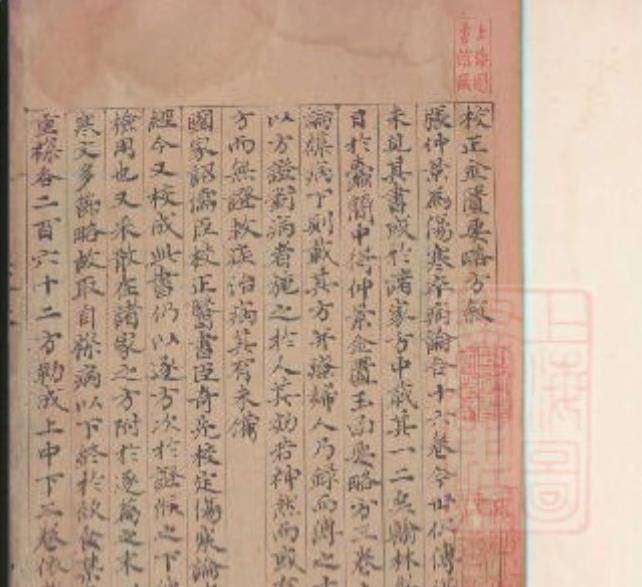 上海圖書館藏
校正金匱要略方敘
張仲景為傷寒卒病論合十六卷今世但傳
未見其書或於諸家方中載其一二矣翰林
日於蠹簡中得仲景金匱玉函要略方三卷
論雜病下則載其方并療婦人乃錄而傳之士
以方證對病者施之於人其効若神然而或有
方而無證救疾治病其有未備
國家詔儒臣校正醫書臣奇先校定傷寒論
經今又校成此書仍以逐方次於證候之下
檢用也又采散在諸家之方附於逐篇之末
寒文多節略故取自雜病以下終於飲食禁
重複合二百六十二方勒成上中下三卷依
上海圖